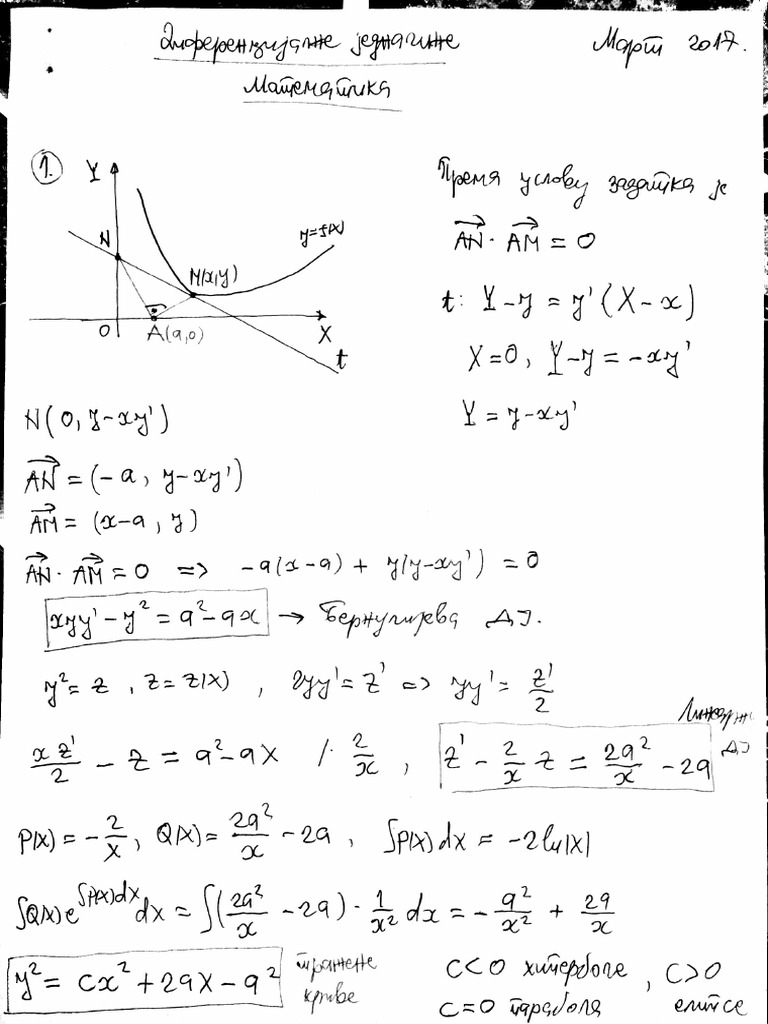 Диференцијалне једначине
Март 2017.
Математика
1.
Y
N
M(x,y)
y=f(x)
O
A(a,0)
X
t
Према услову задатка је
AN⃗ · AM⃗ = 0
t: Y-y = y'(X-x)
X=0, Y-y = -xy'
Y = y-xy'
N(0, y-xy')
AN⃗ = (-a, y-xy')
AM⃗ = (x-a, y)
AN⃗ · AM⃗ = 0 => -a(x-a) + y(y-xy') = 0
xyy' - y² = a² - ax → Бернулијева ДЈ.
y² = z, z = z(x), 2yy' = z' => yy' = z'/2
xz'/2 - z = a² - ax /· 2/x, z' - 2/x z = 2a²/x - 2a Линеарна ДЈ
P(x) = -2/x, Q(x) = 2a²/x - 2a, ∫P(x)dx = -2ln|x|
∫Q(x)e^∫P(x)dx dx = ∫(2a²/x - 2a) · 1/x² dx = -a²/x² + 2a/x
y² = cx² + 2ax - a² тражене криве
c<0 хиперболе, c>0 елипсе
c=0 парабола